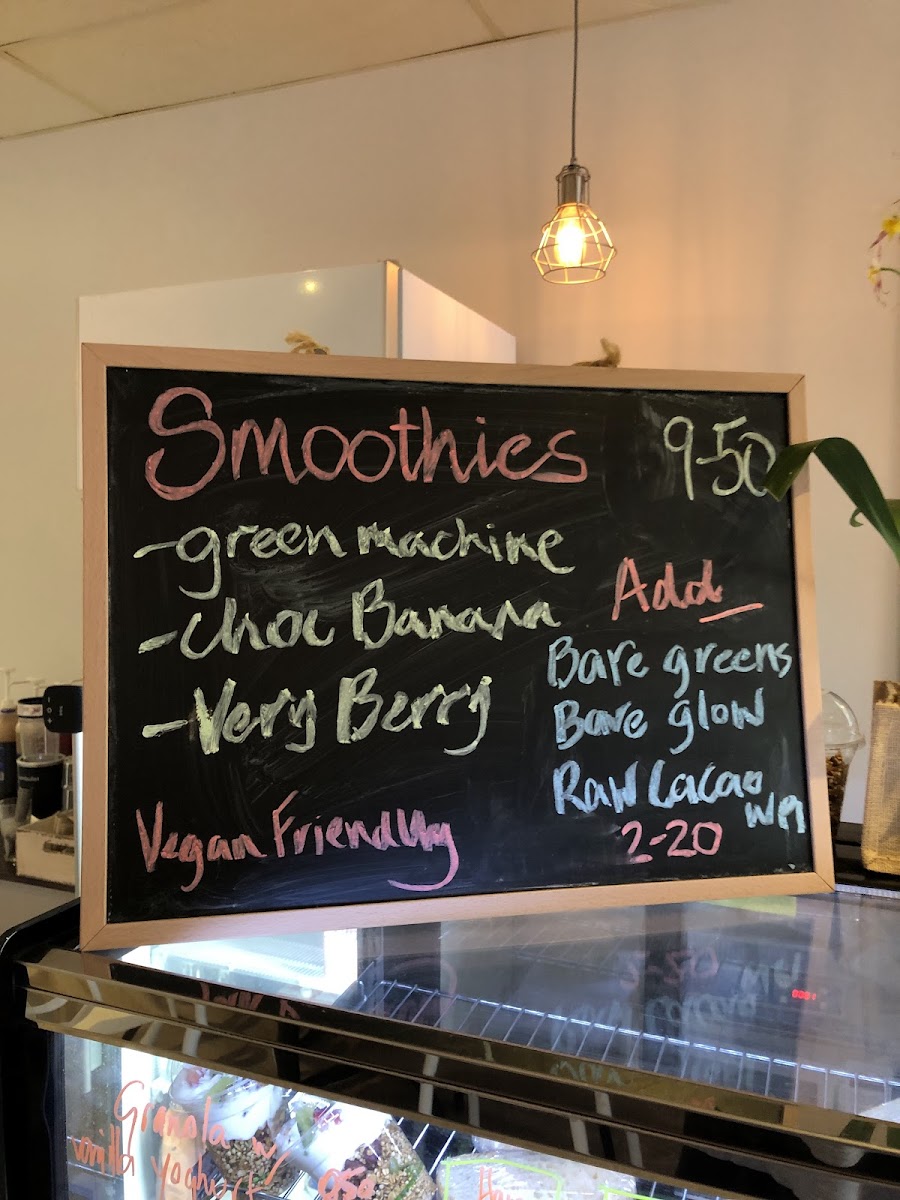 Smoothies 9-50
-green machine
-Choc Banana
-Very Berry
Add
Bare greens
Bare glow
Raw Cacao
WPI
2-20
Vegan Friendly
Granola w/
vanilla yoghurt